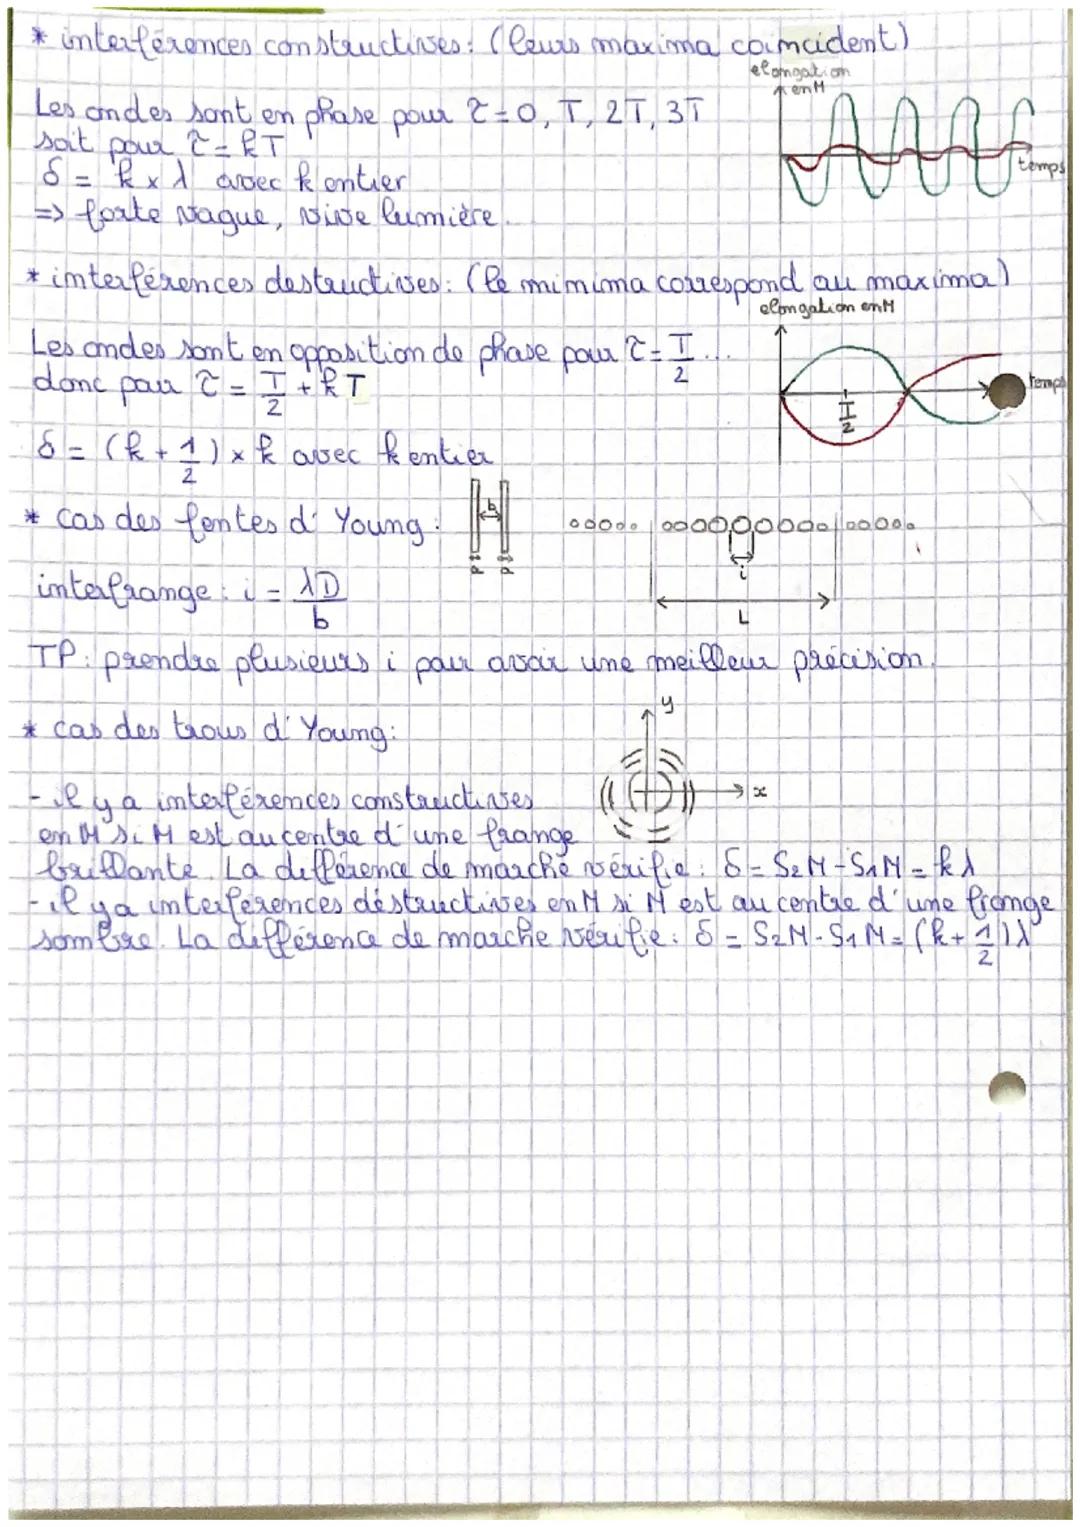 * interférences constructives : (leurs maxima coïncident)
elongation
en M
Les ondes sont en phase pour τ = 0, T, 2T, 3T
soit pour τ = kT
temps
δ = k x λ avec k entier
=> forte vague, vive lumière.
* interférences destructives : (le minima correspond au maxima)
elongation en M
Les ondes sont en opposition de phase pour τ = T/2 ...
donc pour τ = T/2 + kT
temps
T/2
δ = (k + 1/2) x k avec k entier
* cas des fentes d'Young :
b
a a
i
L
interfrange : i = λD/b
TP : prendre plusieurs i pour avoir une meilleur précision.
* cas des trous d'Young :
y
x
- il y a interférences constructives
en M si M est au centre d'une frange
brillante. La différence de marche vérifie : δ = S2M - S1M = kλ
- il y a interférences destructives en M si M est au centre d'une frange
sombre. La différence de marche vérifie : δ = S2M - S1M = (k + 1/2)λ